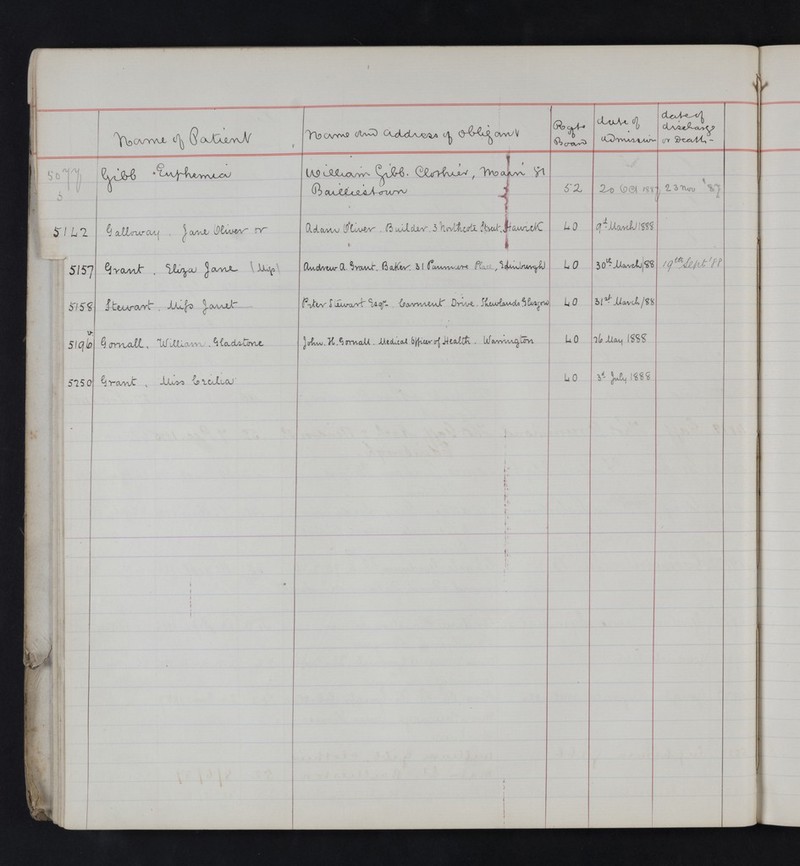 Name of Patient Name and address of obligant Rate Board date of admission date of discharge or death -
5077 Gibb Euphemia William Gibb. Clothier, Main St 52 20 Oct 1887 23 Nov '87
5 Bailliestown
5142 Galloway. Jane Oliver or Adam Oliver. Builder. 3 Northcote Street, Hawick 40 9th March 1888
5157 Grant. Eliza Jane (Miss) Andrew A. Grant. Baker. 31 Panmure Place, Edinburgh 40 30th March/88 19th Sept '88
5158 Stewart. Miss Janet Peter Stewart Esqre. Garment Drive. Shawlands Glasgow 40 31st March/88
5196 Gornall. William Gladstone John. H. Gornall. Medical Officer of Health. Warrington 40 26 May 1888
5250 Grant. Miss Cecilia 40 3d July 1888